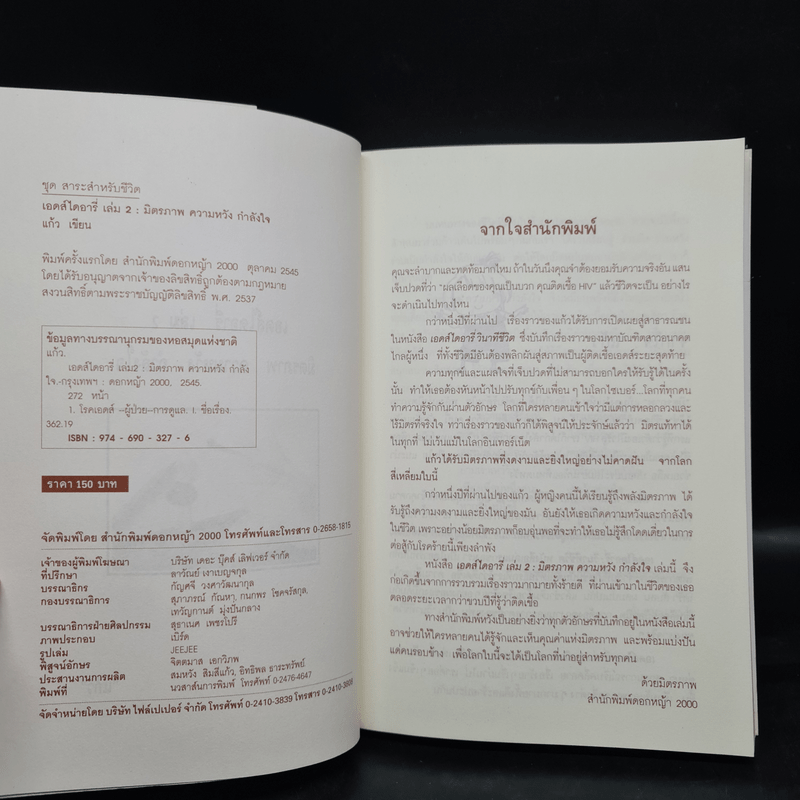 ชุด สาระสำหรับชีวิต
เอดส์ไดอารี่ เล่ม 2 : มิตรภาพ ความหวัง กำลังใจ
แก้ว เขียน
พิมพ์ครั้งแรกโดย สำนักพิมพ์ดอกหญ้า 2000 ตุลาคม 2545
โดยได้รับอนุญาตจากเจ้าของลิขสิทธิ์ถูกต้องตามกฎหมาย
สงวนสิทธิ์ตามพระราชบัญญัติลิขสิทธิ์ พ.ศ. 2537
ข้อมูลทางบรรณานุกรมของหอสมุดแห่งชาติ
แก้ว.
เอดส์ไดอารี่ เล่ม2 : มิตรภาพ ความหวัง กำลัง
ใจ.-กรุงเทพฯ : ดอกหญ้า 2000, 2545.
272 หน้า
1. โรคเอดส์ --ผู้ป่วย--การดูแล. I. ชื่อเรื่อง.
362.19
ISBN : 974 - 690 - 327 - 6
ราคา 150 บาท
จัดพิมพ์โดย สำนักพิมพ์ดอกหญ้า 2000 โทรศัพท์และโทรสาร 0-2658-1815
เจ้าของผู้พิมพ์โฆษณา บริษัท เดอะ บุ๊คส์ เลิฟเวอร์ จำกัด
ที่ปรึกษา ลาวัณย์ เงาเบญจกุล
บรรณาธิกร กัญศจี วงศาวัฒนากุล
กองบรรณาธิการ สุภาภรณ์ กัณหา, กนกพร โชคจรัสกุล,
เทวัญกานต์ มุ่งปั่นกลาง
บรรณาธิการฝ่ายศิลปกรรม สุธาเนศ เพชรโปรี
ภาพประกอบ เบิร์ด
รูปเล่ม JEEJEE
พิสูจน์อักษร จิตตมาส เอกวิภพ
ประสานงานการผลิต สมหวัง สิมสีแก้ว, อิทธิพล ธาระทรัพย์
พิมพ์ที่ นวสาส์นการพิมพ์ โทรศัพท์ 0-2476-4647
จัดจำหน่ายโดย บริษัท ไฟล์เปเปอร์ จำกัด โทรศัพท์ 0-2410-3839 โทรสาร
จากใจสำนักพิมพ์
คุณจะลำบากและทดท้อมากไหม ถ้าในวันนึงคุณจำต้องยอมรับความจริงอัน แสน
เจ็บปวดที่ว่า "ผลเลือดของคุณเป็นบวก คุณติดเชื้อ HIV" แล้วชีวิตจะเป็น อย่างไร
จะดำเนินไปทางไหน
กว่าหนึ่งปีที่ผ่านไป เรื่องราวของแก้วได้รับการเปิดเผยสู่สาธารณชน
ในหนังสือ เอดส์ไดอารี่ วินาทีชีวิต ซึ่งบันทึกเรื่องราวของมหาบัณฑิตสาวอนาคต
ไกลผู้หนึ่ง ที่ทั้งชีวิตมีอันต้องพลิกผันสู่สภาพเป็นผู้ติดเชื้อเอดส์ระยะสุดท้าย
ความทุกข์และแผลใจที่เจ็บปวดที่ไม่สามารถบอกใครให้รับรู้ได้ในครั้ง
นั้น ทำให้เธอต้องหันหน้าไปปรับทุกข์กับเพื่อน ๆ ในโลกไซเบอร์...โลกที่ทุกคน
ทำความรู้จักกันผ่านตัวอักษร โลกที่ใครหลายคนเข้าใจว่ามีแต่การหลอกลวงและ
ไร้มิตรที่จริงใจ ทว่าเรื่องราวของแก้วก็ได้พิสูจน์ให้ประจักษ์แล้วว่า มิตรแท้หาได้
ในทุกที่ ไม่เว้นแม้ในโลกอินเทอร์เน็ต
แก้วได้รับมิตรภาพที่งดงามและยิ่งใหญ่อย่างไม่คาดฝัน จากโลก
สี่เหลี่ยมใบนี้
กว่าหนึ่งปีที่ผ่านไปของแก้ว ผู้หญิงคนนี้ได้เรียนรู้ถึงพลังมิตรภาพ ได้
รับรู้ถึงความงดงามและยิ่งใหญ่ของมัน อันยังให้เธอเกิดความหวังและกำลังใจ
ในชีวิต เพราะอย่างน้อยมิตรภาพก็อบอุ่นพอที่จะทำให้เธอไม่รู้สึกโดดเดี่ยวในการ
ต่อสู้กับโรคร้ายนี้เพียงลำพัง
หนังสือ เอดส์ไดอารี่ เล่ม 2 : มิตรภาพ ความหวัง กำลังใจ เล่มนี้ จึง
ก่อเกิดขึ้นจากการรวบรวมเรื่องราวมากมายทั้งร้ายดี ที่ผ่านเข้ามาในชีวิตของเธอ
ตลอดระยะเวลากว่าขวบปีที่รู้ว่าติดเชื้อ
ทางสำนักพิมพ์หวังเป็นอย่างยิ่งว่าทุกตัวอักษรที่บันทึกอยู่ในหนังสือเล่มนี้
อาจช่วยให้ใครหลายคนได้รู้จักและเห็นคุณค่าแห่งมิตรภาพ และพร้อมแบ่งปัน
แด่คนรอบข้าง เพื่อโลกใบนี้จะได้เป็นโลกที่น่าอยู่สำหรับทุกคน
ด้วยมิตรภาพ
สำนักพิมพ์ดอกหญ้า 2000